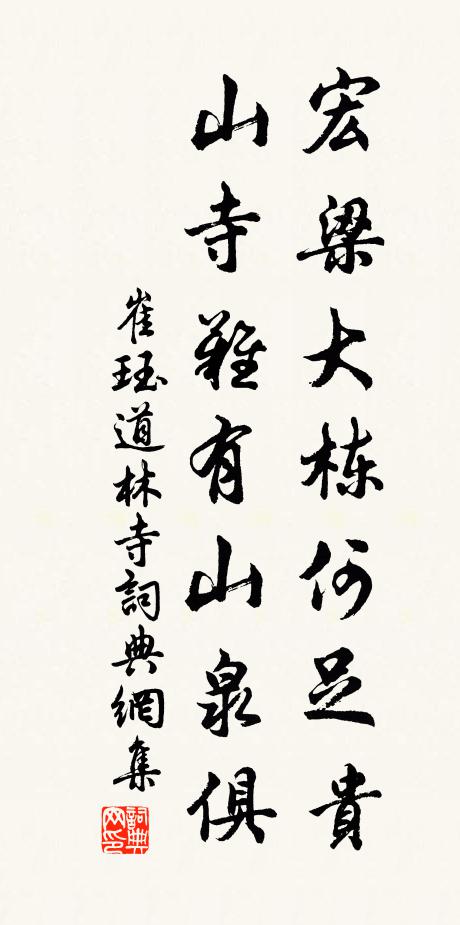 宏梁大栋何足貴
山寺難有山泉俱
崔珏道林寺詞典網集
詞典网印